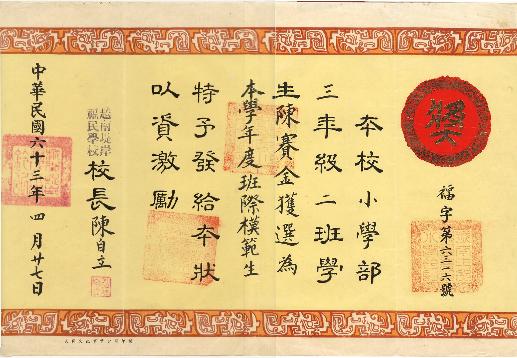 獎
福字第六三一六號
本校小學部
三年級二班學
生陳賽金獲選為
本學年度班際模範生
特予發給本狀
以資激勵
越南堤岸
福民學校
校長陳自立
中華民國六十三年四月廿七日